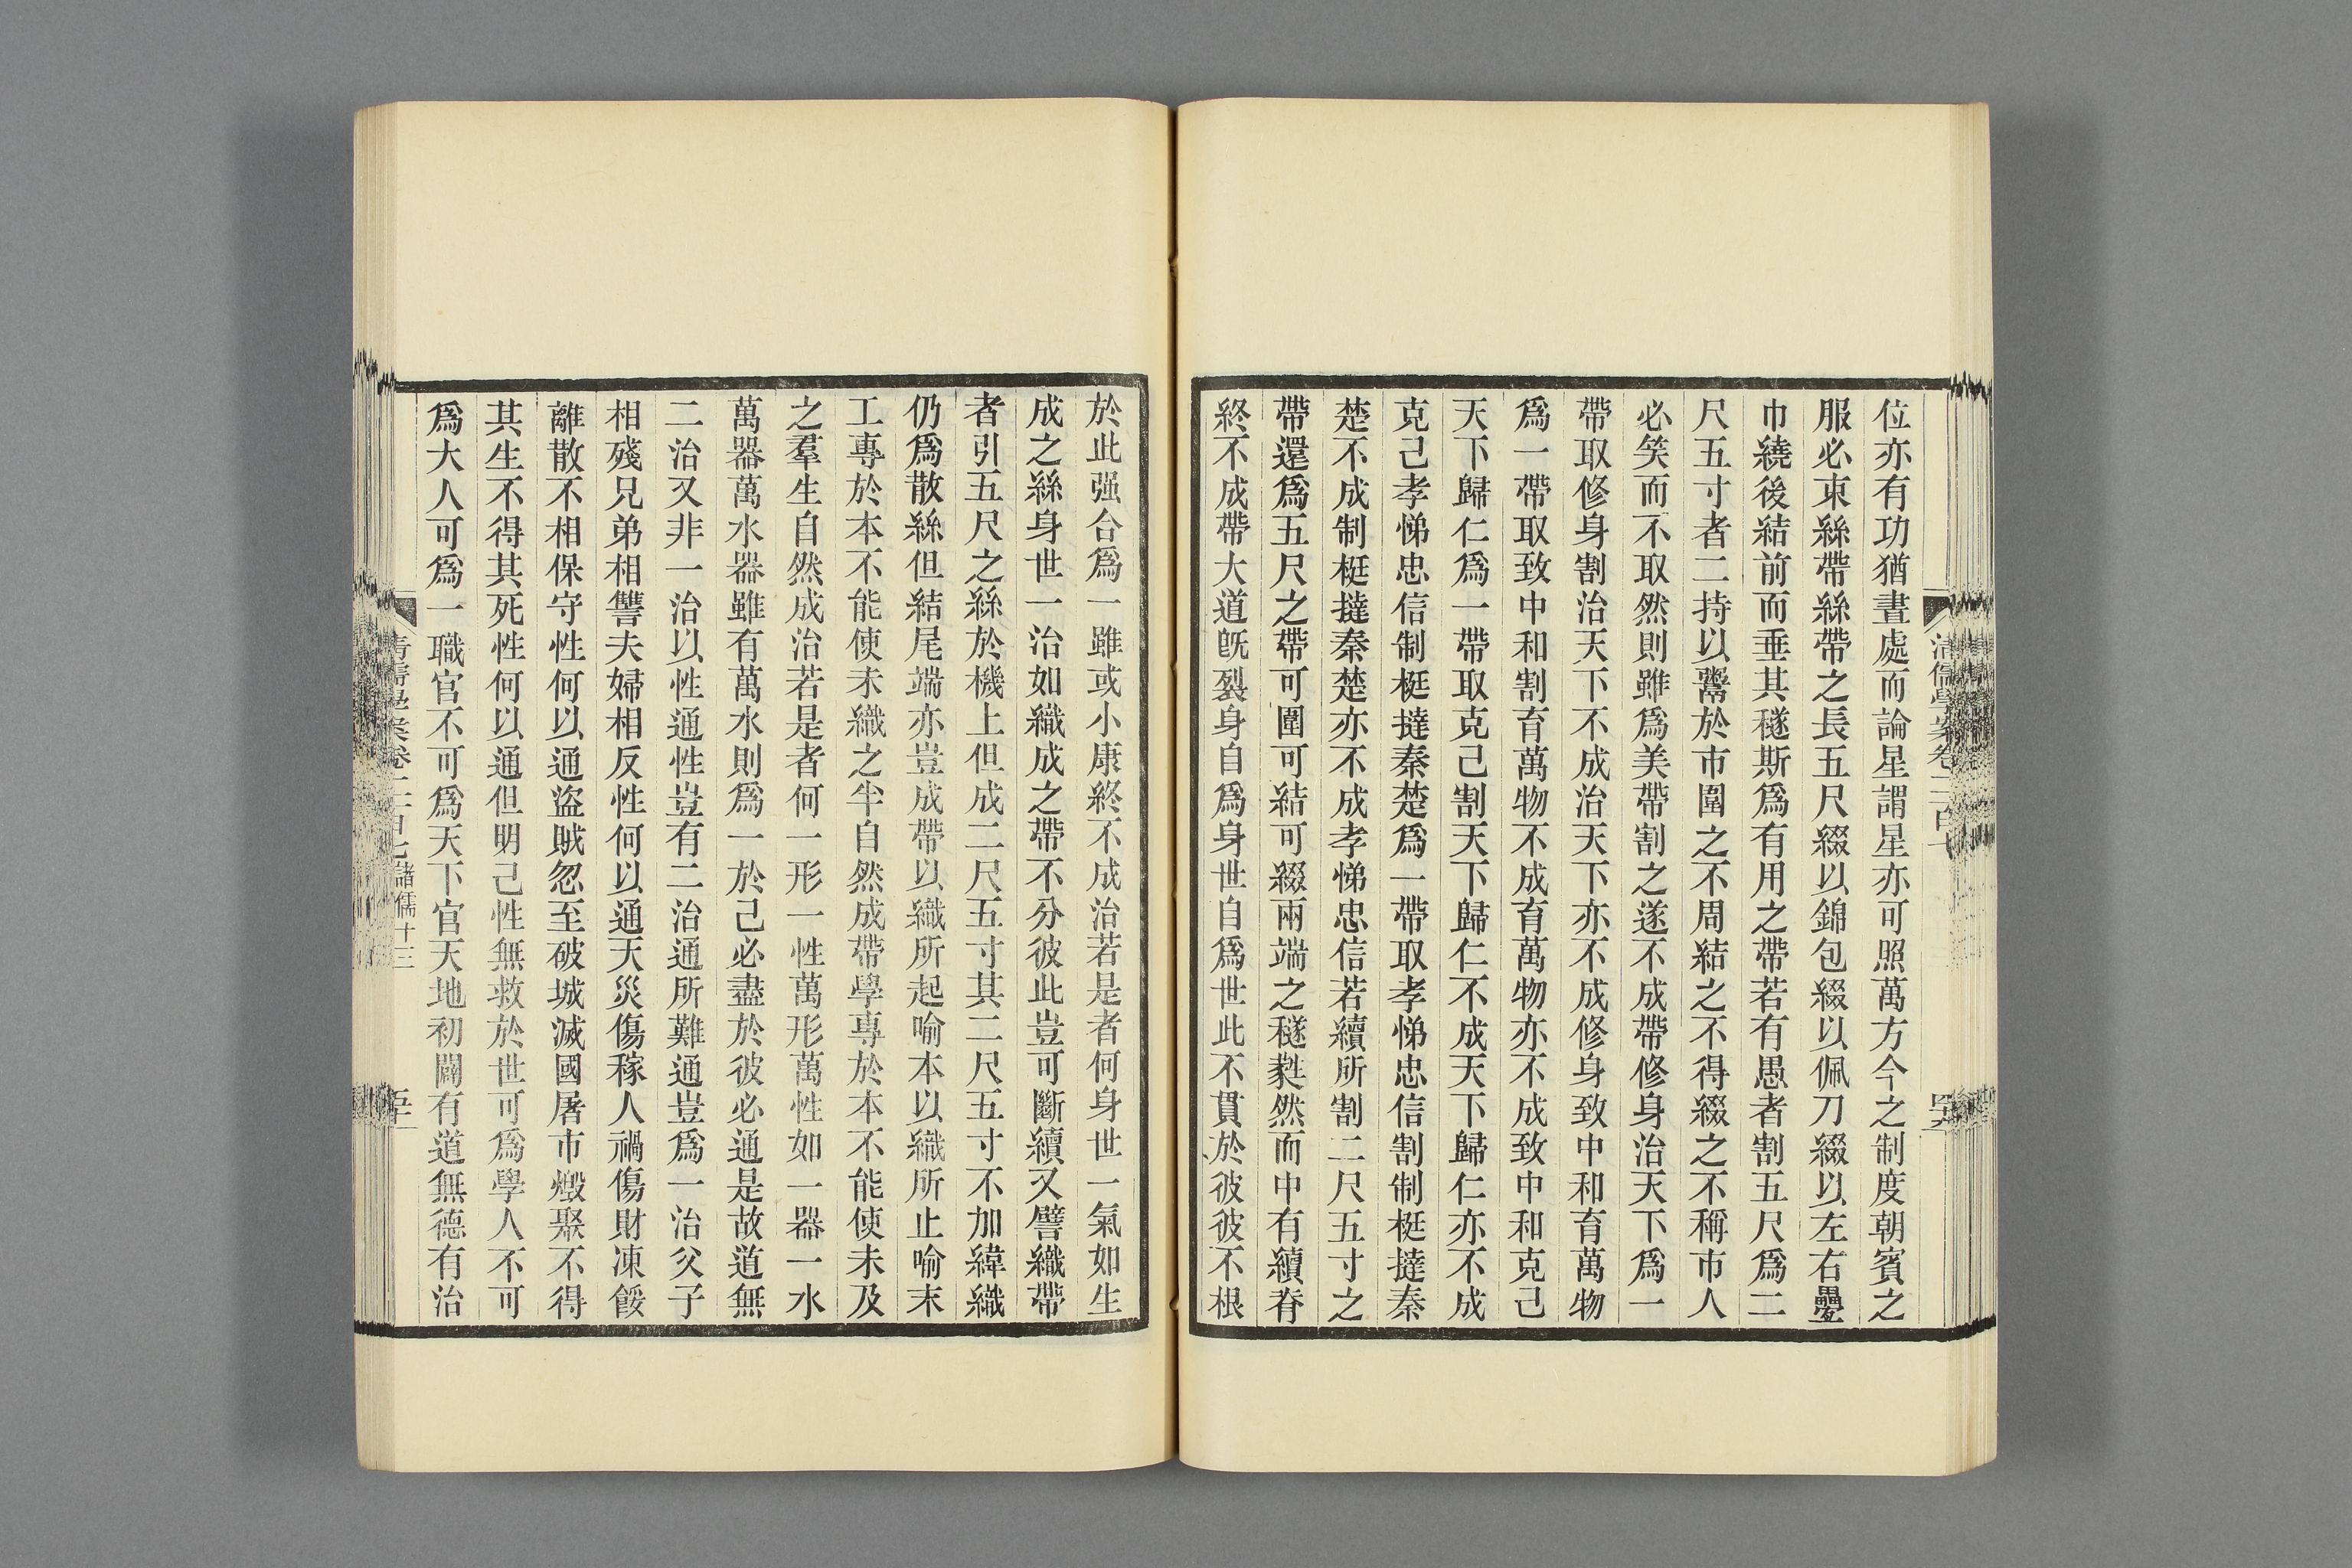 位亦有功猶晝處而論星謂星亦可照萬方今之制度朝賓之
服必束絲帶絲帶之長五尺綴以錦包綴以佩刀綴以左右疊
巾繞後結前而垂其穟斯爲有用之帶若有愚者割五尺爲二
尺五寸者二持以鬻於市圍之不周結之不得綴之不稱市人
必笑而不取然則雖爲美帶割之遂不成帶修身治天下爲一
帶取修身割治天下不成治天下亦不成修身致中和育萬物
爲一帶取致中和割育萬物不成育萬物亦不成致中和克己
天下歸仁爲一帶取克己割天下歸仁不成天下歸仁亦不成
克己孝悌忠信制梃撻秦楚爲一帶取孝悌忠信割制梃撻秦
楚不成制梃撻秦楚亦不成孝悌忠信若續所割二尺五寸之
帶還爲五尺之帶可圍可結可綴兩端之穟蕤然而中有續脊
終不成帶大道旣裂身自爲身世自爲世此不貫於彼彼不根
清儒學案卷二百七
於此强合爲一雖或小康終不成治若是者何身世一氣如生
成之絲身世一治如織成之帶不分彼此豈可斷續又譬織帶
者引五尺之絲於機上但成二尺五寸其二尺五寸不加緯織
仍爲散絲但結尾端亦豈成帶以織所起喻本以織所止喻末
工專於本不能使未織之半自然成帶學專於本不能使未及
之羣生自然成治若是者何一形一性萬形萬性如一器一水
萬器萬水器雖有萬水則爲一於己必盡於彼必通是故道無
二治又非一治以性通性豈有二治通所難通豈爲一治父子
相殘兄弟相讐夫婦相反性何以通天災傷稼人禍傷財凍餒
離散不相保守性何以通盜賊忽至破城滅國屠市燬聚不得
其生不得其死性何以通但明己性無救於世可爲學人不可
爲大人可爲一職官不可爲天下官天地初闢有道無德有治
諸儒十三